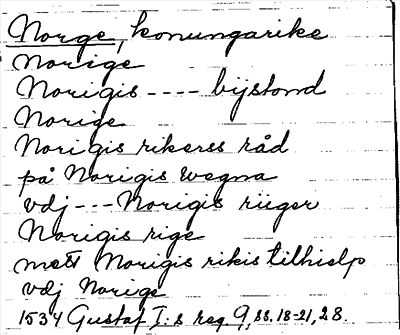 Norge, konungarike
Norige
Norigis ---- bijstond
Norige
Norigis rikerss råd
på Norigis wegna
vdj --- Norigis riiger
Norigis rige
mett Norigis rikis tilhielp
vdj Norige
1534 Gustaf I:s reg 9, ss. 18-21, 28.